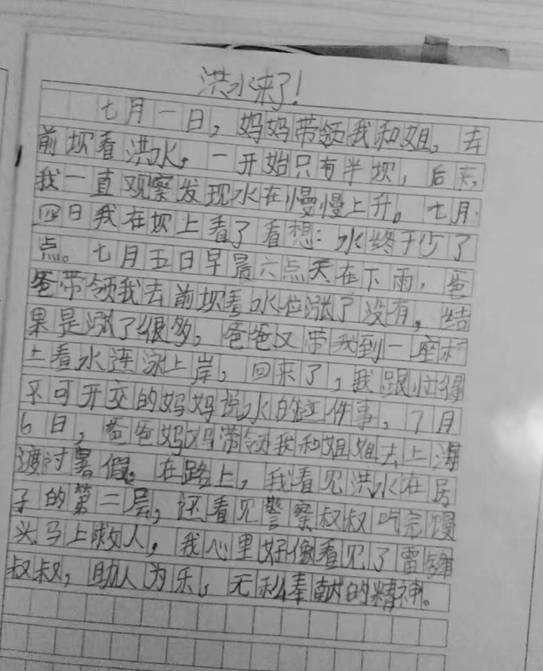 洪水来了!
七月一日，妈妈带领我和姐，去
前坝看洪水，一开始只有半坝，后来，
我一直观察发现水在慢慢上升。七月
四日我在坝上看了看想：水终于少了
点。七月五日早晨六点天在下雨，爸
爸带领我去前坝看水位涨了没有，结
果是涨了很多，爸爸又带我到一座桥
上看水连泳上岸，回来了，我跟忙得
不可开交的妈妈说水的这件事，7月
6日，爸爸妈妈带领我和姐姐去上海
渡过暑假。在路上，我看见洪水在房
子的第二层，还看见警察叔叔吃完馒
头马上救人，我心里好像看见了雷锋
叔叔，助人为乐，无私奉献的精神。